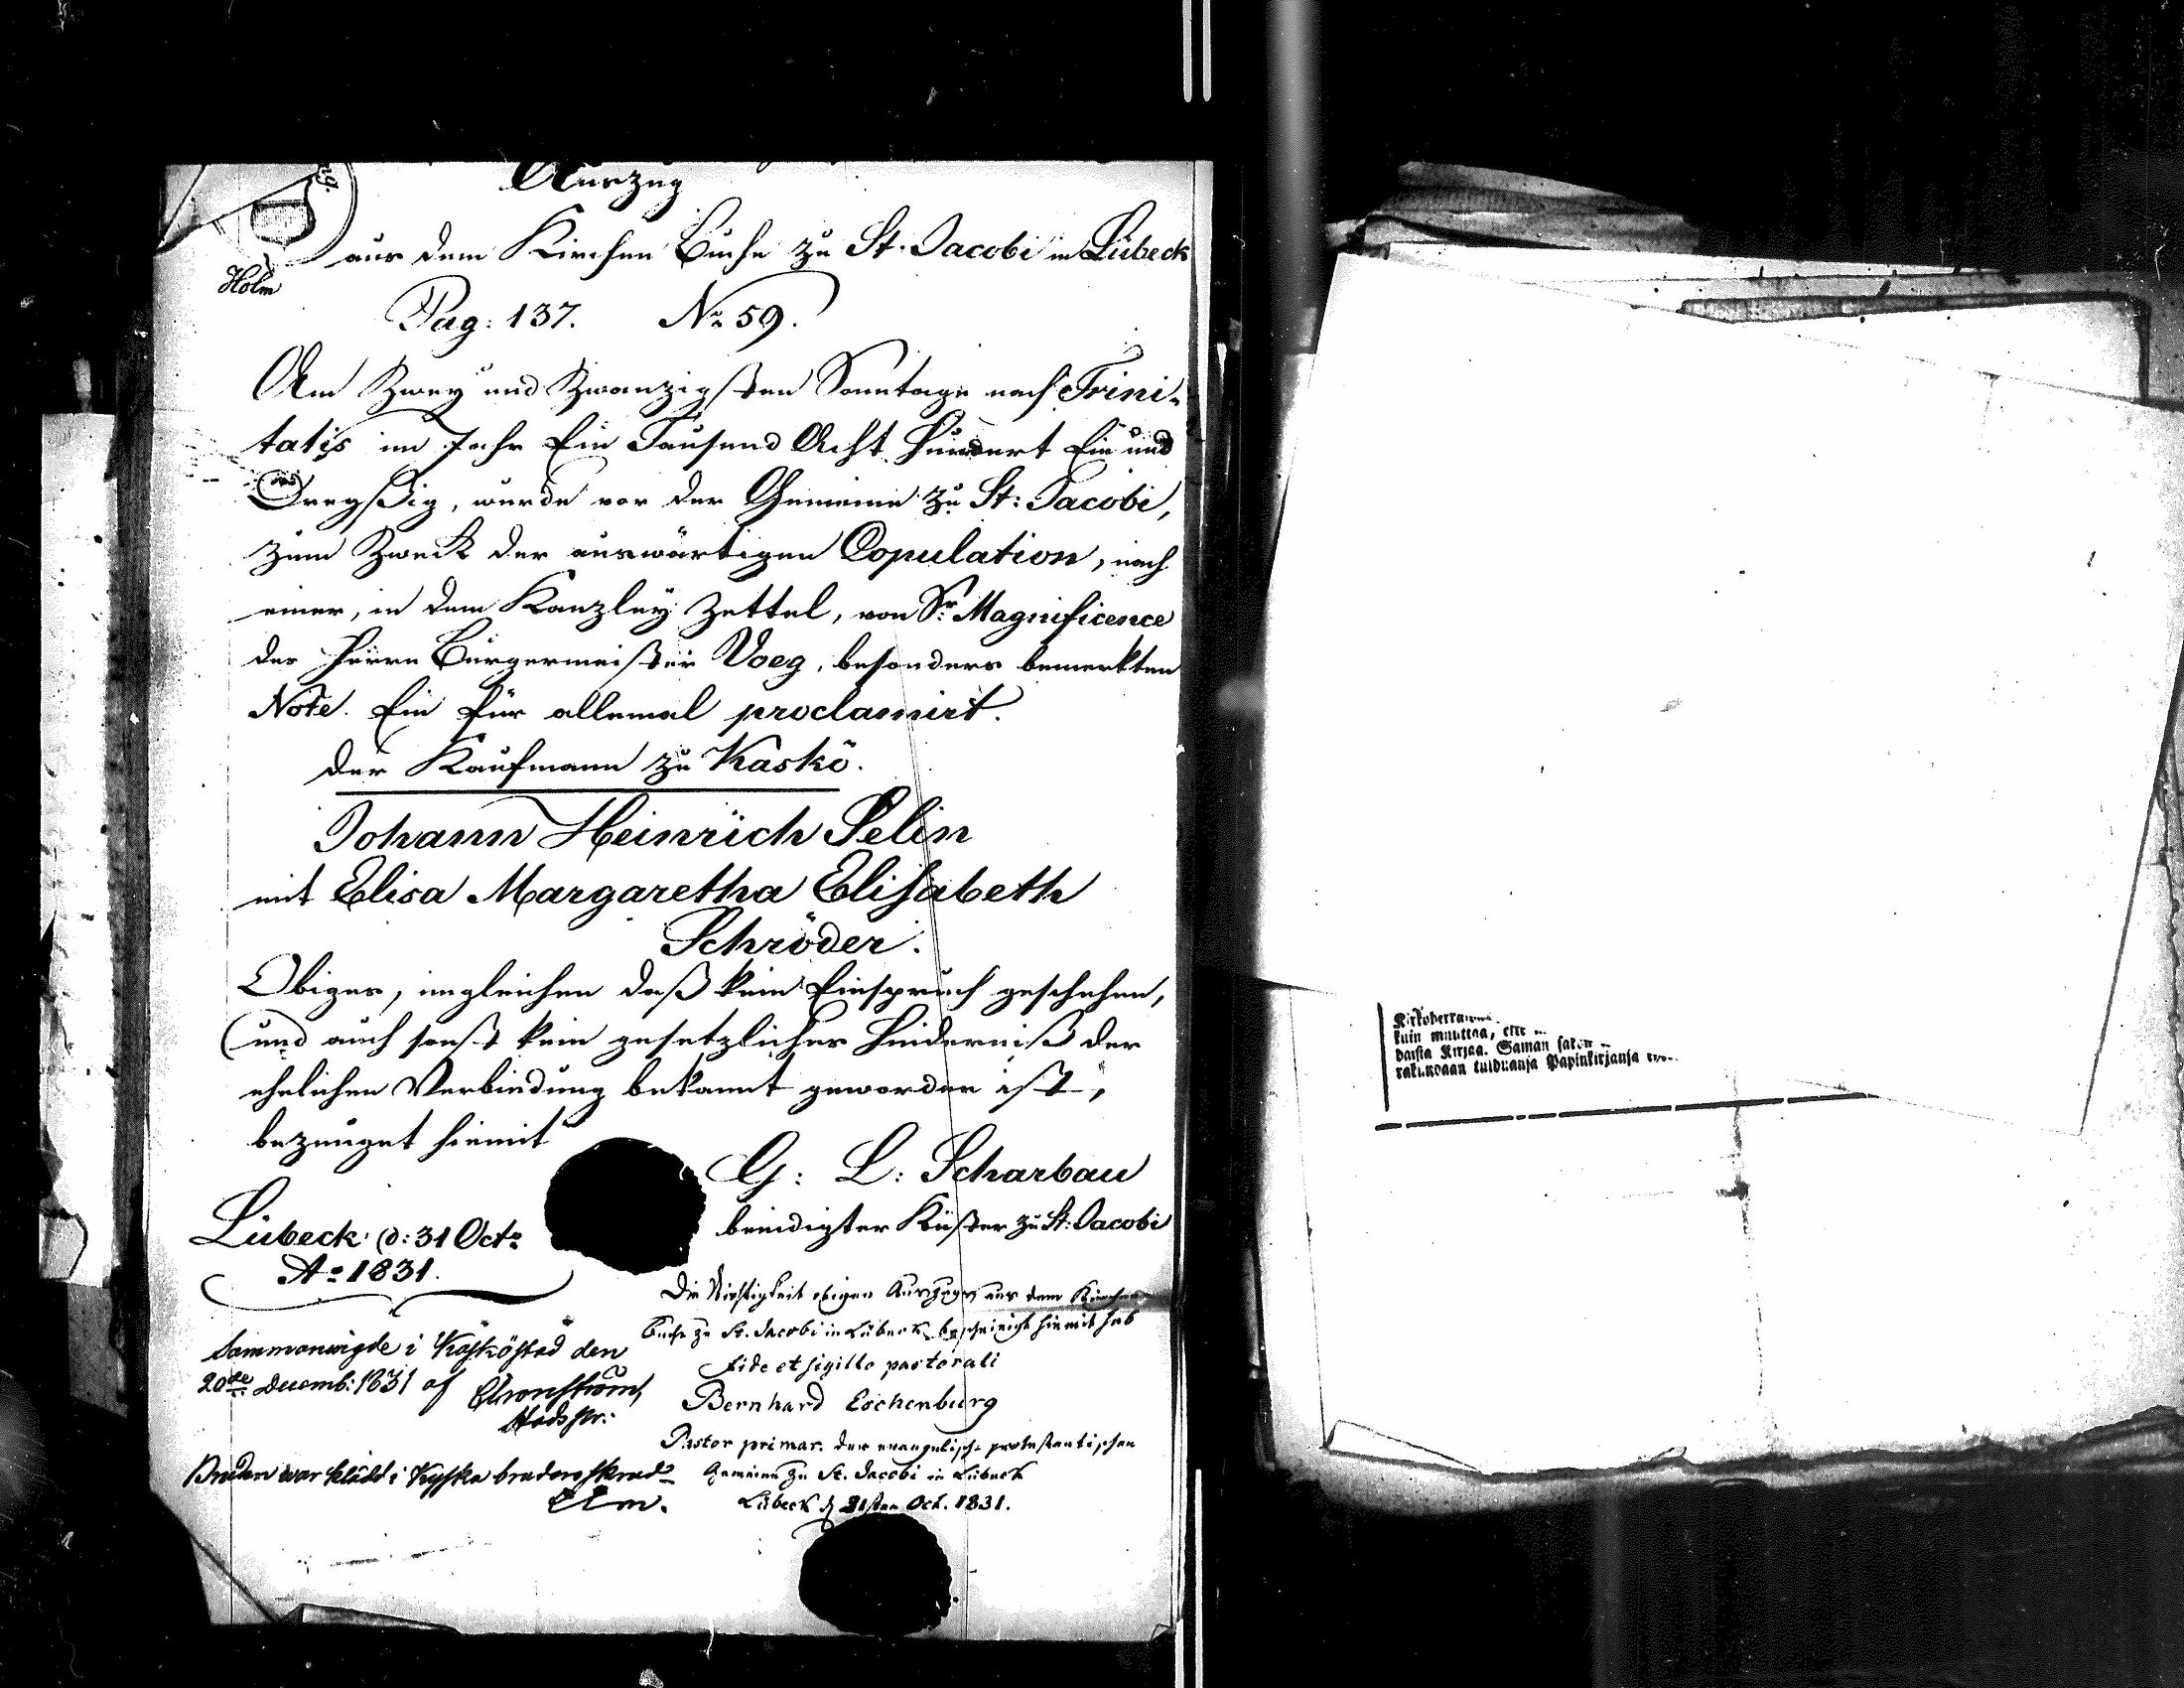 Auszug
aus dem Kirchen Buche zu St. Jacobi in Lübeck
Holm
Pag: 137. No 59.
Am Zwey und Zwanzigsten Sonntage nach Trini-
tatis im Jahr Ein Tausend Acht Hundert Ein und
Dreyßig, wurde vor der Gemeine zu St: Jacobi,
zum Zweck der auswärtigen Copulation, nach
einer, in dem Kanzley Zettel, von Sr. Magnificence
des Herrn Bürgermeister Voeg, besonders bemerkten
Note. Ein für allemal proclamirt.
der Kaufmann zu Kaskö.
Johann Heinrich Selin
mit Elisa Margaretha Elisabeth
Schröder.
Obiges, imgleichen daß kein Einspruch geschehen,
und auch sonst kein gesetzliches Hinderniß der
ehelichen Verbindung bekannt geworden ist,
bezeuget hiemit
G: L: Scharbau
beeidigter Küster zu St: Jacobi
Lübeck d: 31 Octr
Ao 1831.
Die Richtigkeit obigen Auszuges aus dem Kirchen
Buche zu St. Jacobi in Lübeck bescheinigt hiemit sub
fide et sigillo pastorali
Bernhard Eschenburg
Pastor primar. der evangelisch protestantischen
Gemeine zu St. Jacobi in Lübeck
Lübeck d 31sten Oct. 1831.
Sammanvigde i Kaskö stad den
20de Decemb: 1831 af
Bruden war klädd i Tyska brudeskrud
kuin muuttaa,
daista Kirjaa. Saman
Papinkirjansa